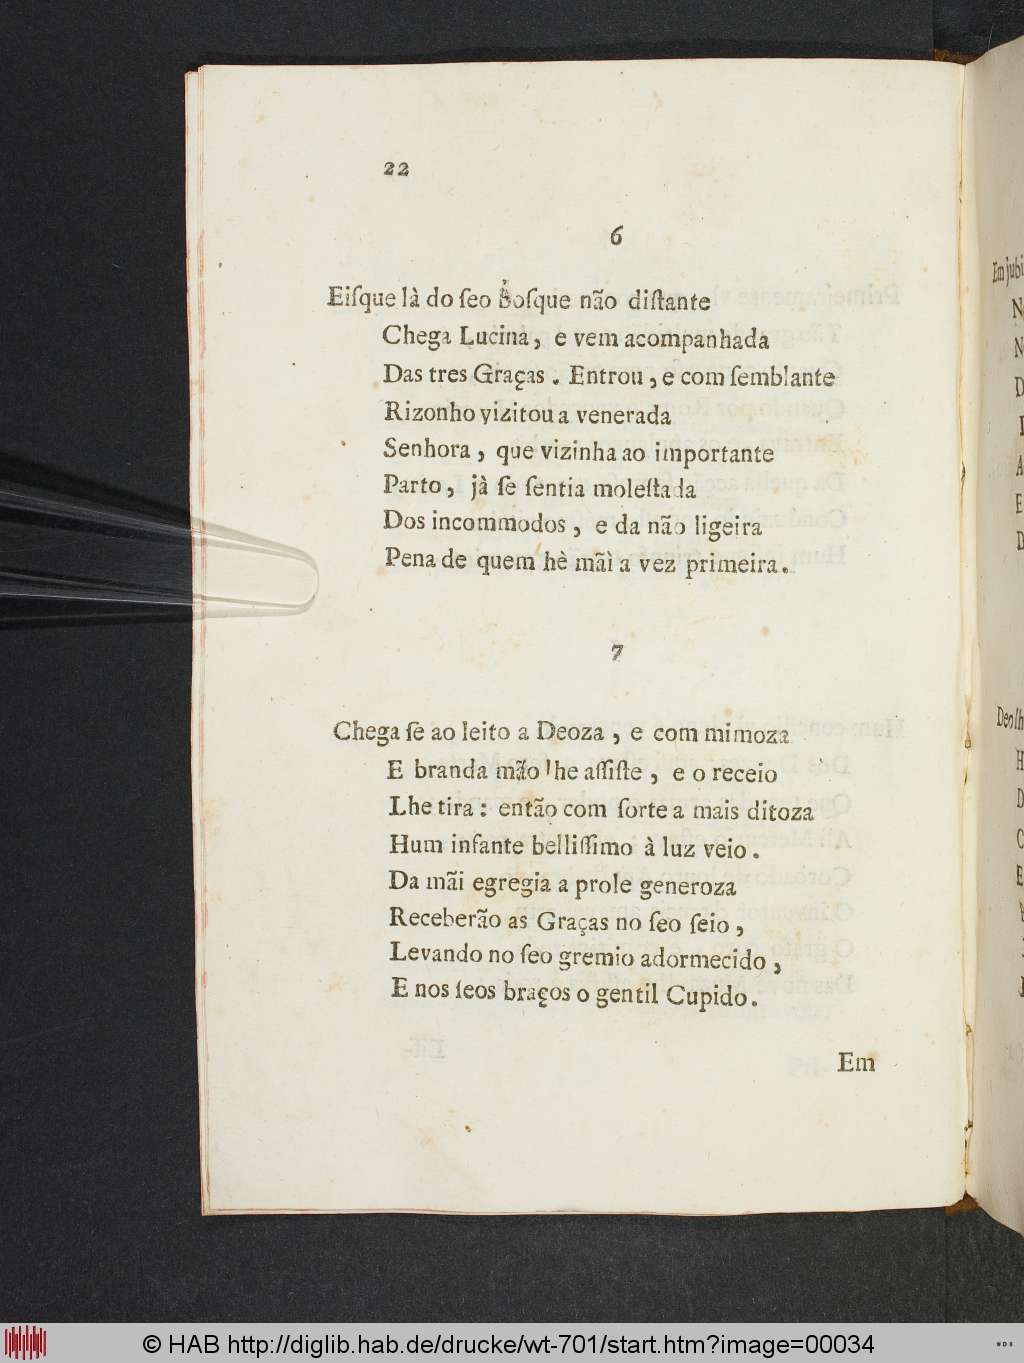 22
6
Eiſque là do ſeo Boſque não diſtante
Chega Lucina, e vem acompanhada
Das tres Graças. Entrou, e com ſemblante
Rizonho vizitou a venerada
Senhora, que vizinha ao importante
Parto, jà ſe ſentia moleſtada
Dos incommodos, e da não ligeira
Pena de quem hè mãi a vez primeira.
7
Chega ſe ao leito a Deoza, e com mimoza
E branda mão lhe aſſiſte, e o receio
Lhe tira: então com ſorte a mais ditoza
Hum infante belliſſimo à luz veio.
Da mãi egregia a prole generoza
Receberão as Graças no ſeo ſeio,
Levando no ſeo gremio adormecido,
E nos ſeos braços o gentil Cupido.
Em
Em jubi
D
A
E
D
Deolh
H
D
C
E
© HAB http://diglib.hab.de/drucke/wt-701/start.htm?image=00034